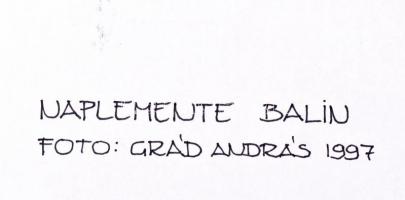 NAPLEMENTE BALIN
FOTO: GRÁD ANDRÁS 1997